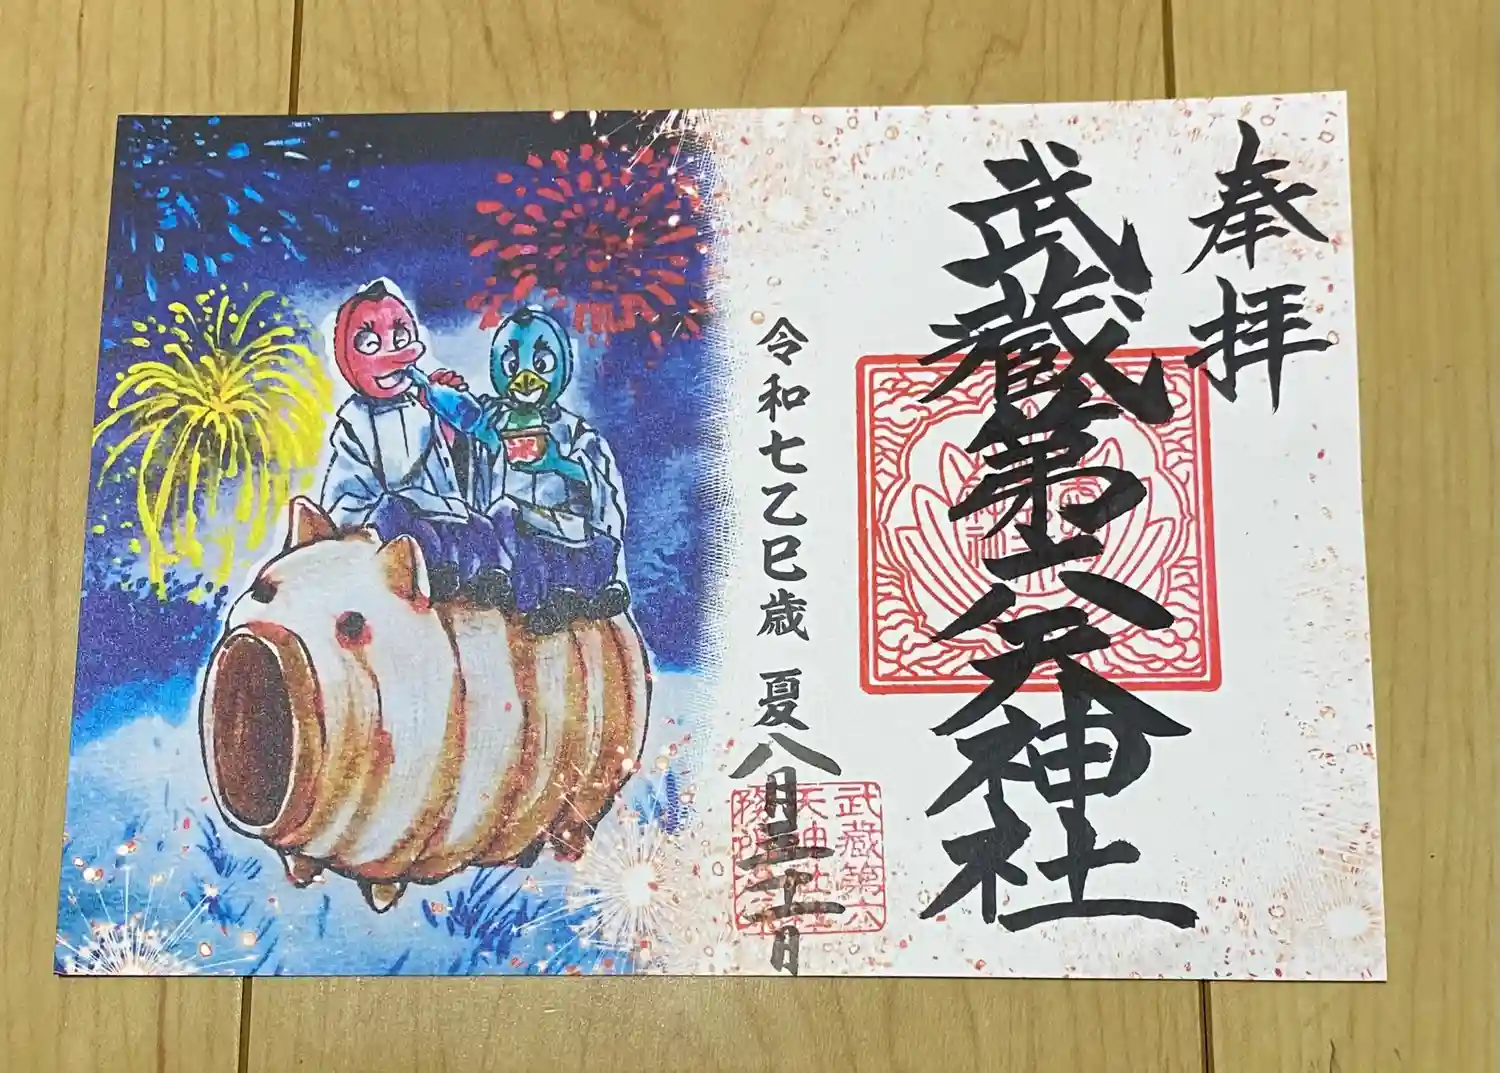 奉拝
武蔵第六天神社
令和七乙巳歳 夏 八月三十一日
武藏第六
天神社
氷